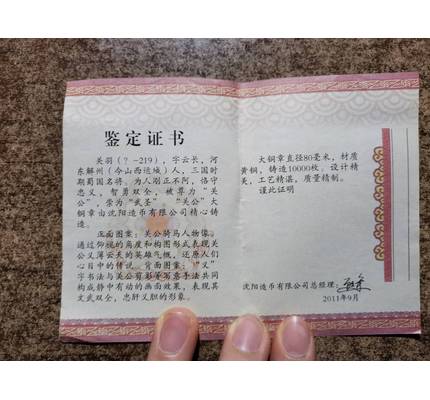 鉴定证书
关羽(?-219),字云长,河
东解州(今山西运城)人,三国时
期蜀国名将。为人刚正不阿,恪守
忠义,智勇双全,被尊为“关
公”,崇为“武圣”。“关公”大
铜章由沈阳造币有限公司精心铸
造。
正面图案:关公骑马人物像。
通过仰视的角度和构图形式表现关
公义薄云天的英雄气慨,还原人们
心目中的情说。背面图案:“义”
字书法与关公剪影等写意手法共同
构成静中有动的画面效果,表现其
文武双全,忠肝义胆的形象。
大铜章直径80毫米,材质
黄铜,铸造10000枚。设计精
美,工艺精湛,质量精制。
谨此证明
沈阳造币有限公司总经理:
2011年9月